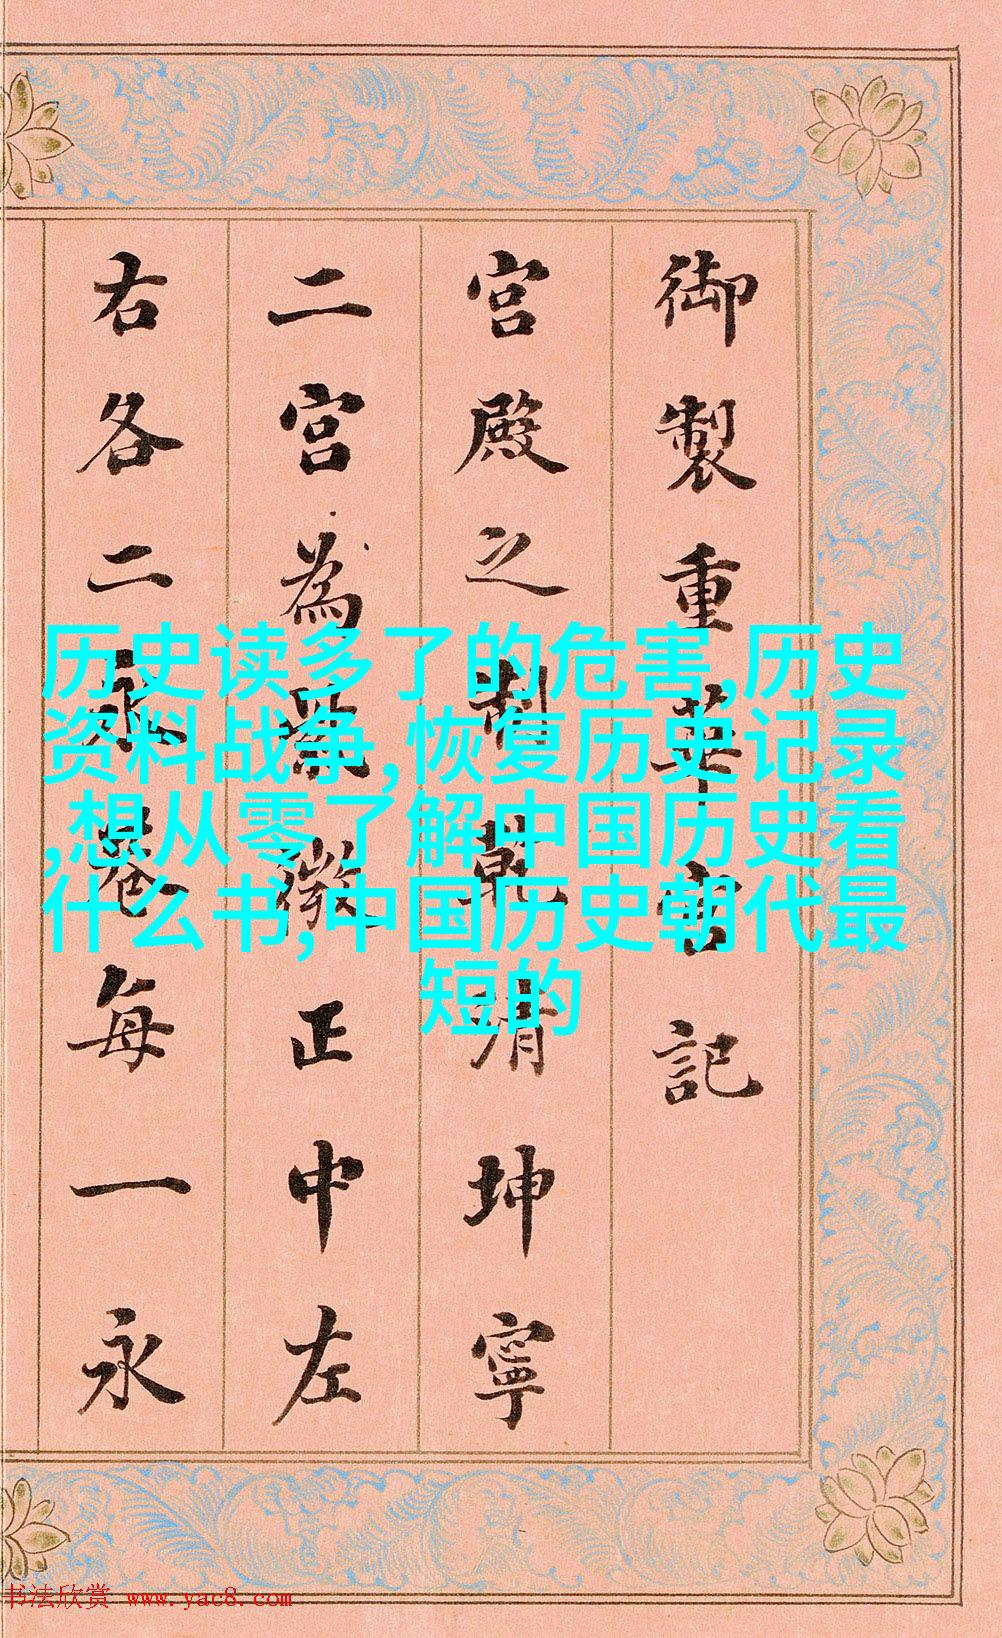 御製重華宮記
宮殿之制乾清坤寧
二宮為紫微正中左
右各二永巷每一永
历史读多了的危害,历史
资料战争,恢复历史记录
,想从零了解中国历史看
什么书,中国历史朝代最
短的
书法欣赏 www.yac8.com